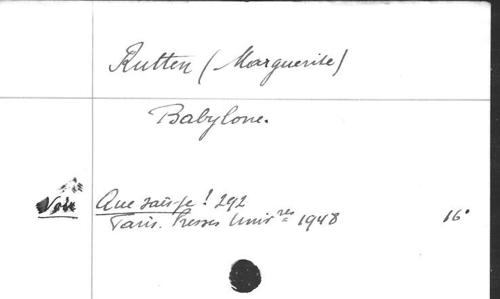 Rutten (Marguerite)
Babylone.
Voir Que sais-je! 292
Paris. Presses Univ res 1948 16°